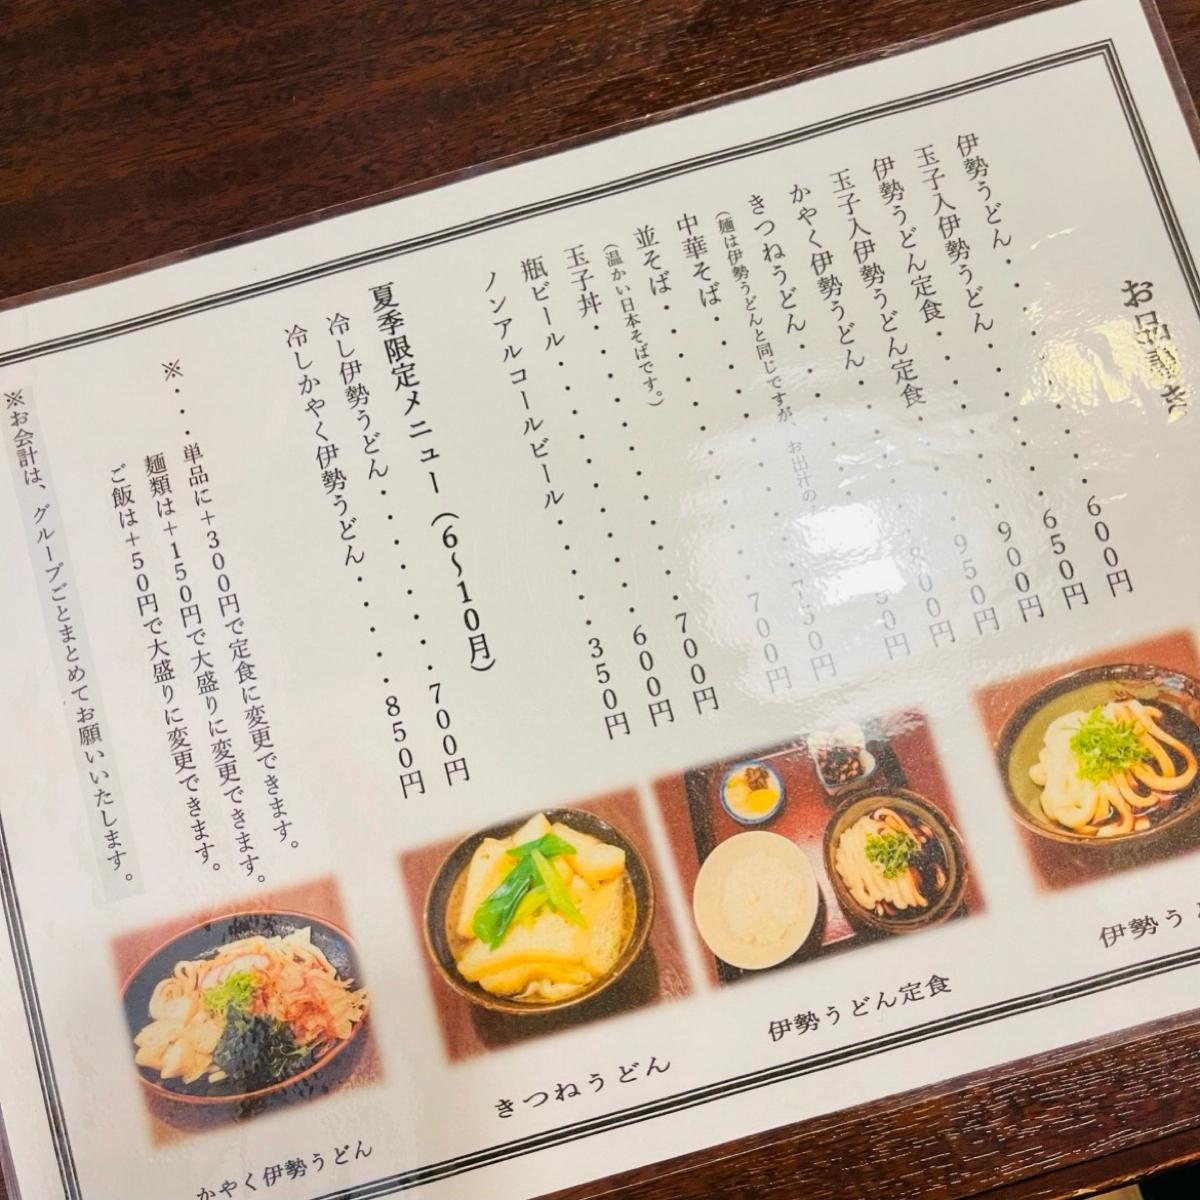 お品書き
伊勢うどん・・・・・・・・・600円
玉子入伊勢うどん・・・・・・650円
伊勢うどん定食・・・・・・・900円
玉子入伊勢うどん定食・・・・950円
かやく伊勢うどん・・・・・・800円
きつねうどん・・・・50円
(麺は伊勢うどんと同じですが、お出汁の
中華そば・・・・・750円
並そば・・・・・・・700円
(温かい日本そばです。)
玉子丼・・・・・・・・・・700円
瓶ビール・・・・・・・・・600円
ノンアルコールビール・・・・・350円
夏季限定メニュー(6〜10月)
冷し伊勢うどん・・・・・・・700円
冷しかやく伊勢うどん・・・・・850円
※・・・単品に+300円で定食に変更できます。
麺類は+150円で大盛りに変更できます。
ご飯は+50円で大盛りに変更できます。
※お会計は、グループごとまとめてお願いいたします。
伊勢うど
伊勢うどん定食
きつねうどん
かやく伊勢うどん